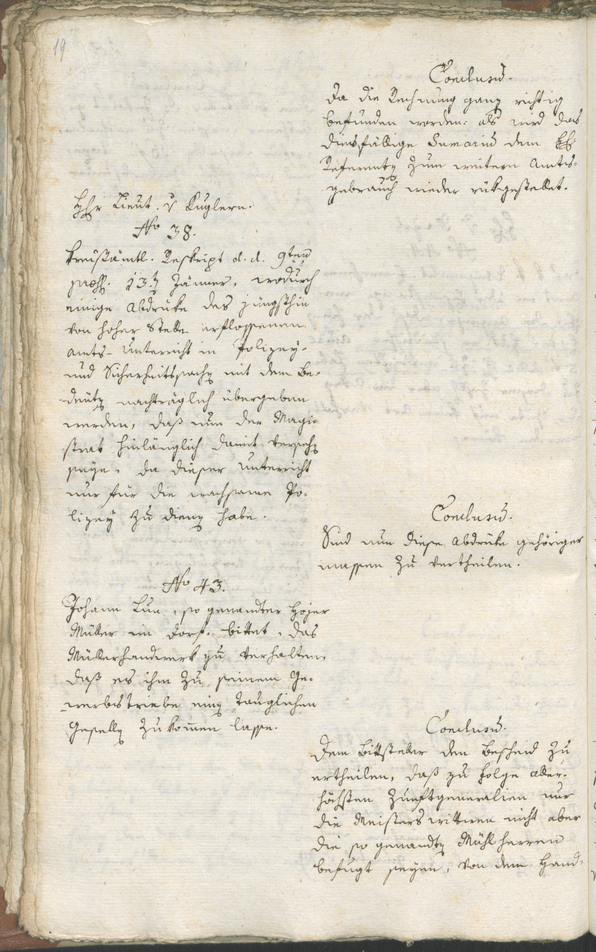 19
Conclusum.
Da die Rechnung ganz richtig
befunden worden: als wird das
diesfällige Sumarium dem H:
Referenten zum weitern Amts-
gebrauch wieder rükgestellet.
Hr Lieut. v Kuglern.
No 38.
Kreisämtl. Reskript d. d. 9ten
præs. 13ten Jänner, wodurch
einige Abdrüke des jüngsthin
von hoher Stelle erflossenen
Amts-Unterricht in Polizey-
und Sicherheitssachen mit dem Be-
deuten nachträglich übergeben
werden, daß nun der Magi-
strat hinlänglich damit versehen
seye, da dieser Unterricht
nur für die wachsame Po-
lizey zu dienen habe.
Conclusum.
Sind nun diese Abdrüke gehöriger
massen zu vertheilen.
No 43.
Johann Lun, so genandter Hofer
Müller im Dorf, bittet, das
Müllerhandwerk zu verhalten,
daß es ihm zu seinem Ge-
werbstriebe einen tauglichen
Gesellen zukom̄en lasse.
Conclusum.
Dem Bittsteller den Bescheid zu
ertheilen, daß zu folge aller-
höchsten Zunftgeneralien nur
die Meisterswittwen nicht aber
die so genandten Mühlherren
befugt seyen, von dem Hand-